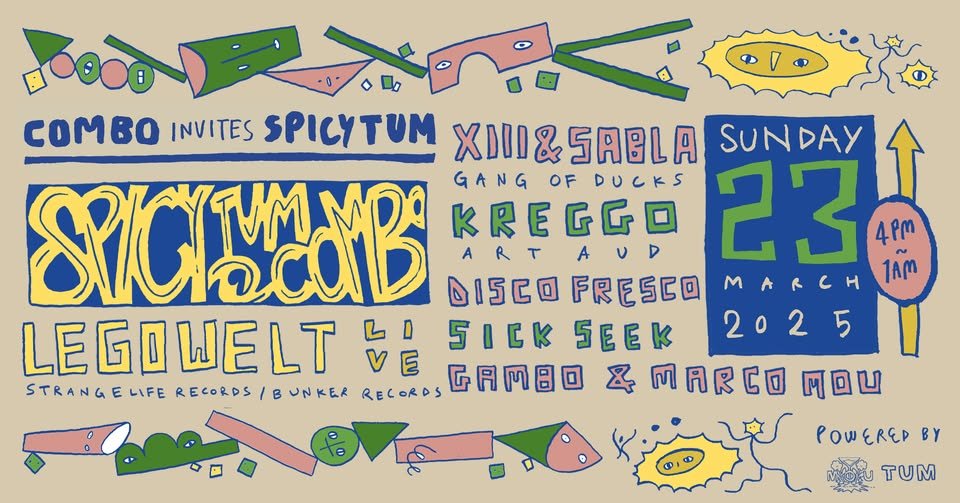 COMBO INVITES SPICYTUM
SPICYTUM @ COMBO
LEGOWELT LIVE
STRANGELIFE RECORDS / BUNKER RECORDS
XIII & SABLA
GANG OF DUCKS
KREGGO
ART AUD
DISCO FRESCO
SICK SEEK
GAMBO & MARCO MOU
SUNDAY
23
MARCH
2025
4PM
~
1AM
POWERED BY
MOU TUM